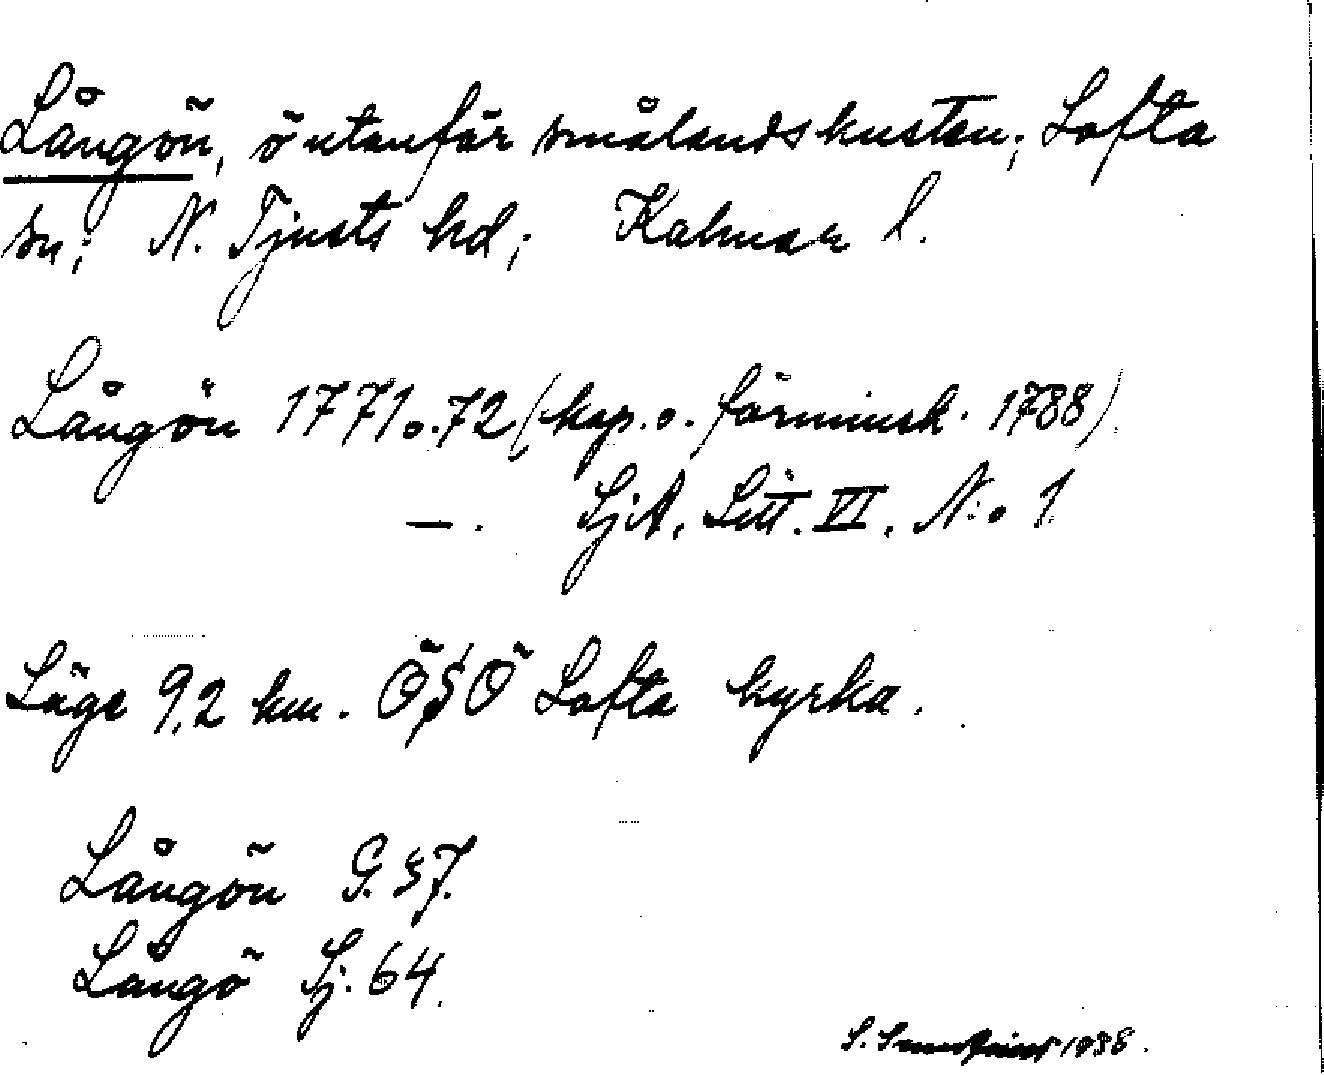 Långön, ö utanför smålandskusten; Lofta
sn; N. Tjusts hd; Kalmar l.
Långön 1771 o. 72 (kop. o. förminsk. 1788)
—. SjA. Litt. VI. N:o 1
Läge 9,2 km. ÖSÖ Lofta kyrka.
Långön G. 57.
Långö Sj. 64.
S. 1938.